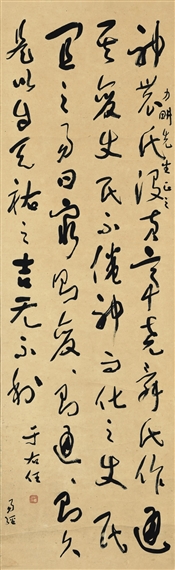 先生正之
神農氏没黃帝堯舜氏作通
其變使民不倦神而化之使民
宜之易曰窮則變〻則通〻則久
是以自天祐之吉无不利
于右任
易經